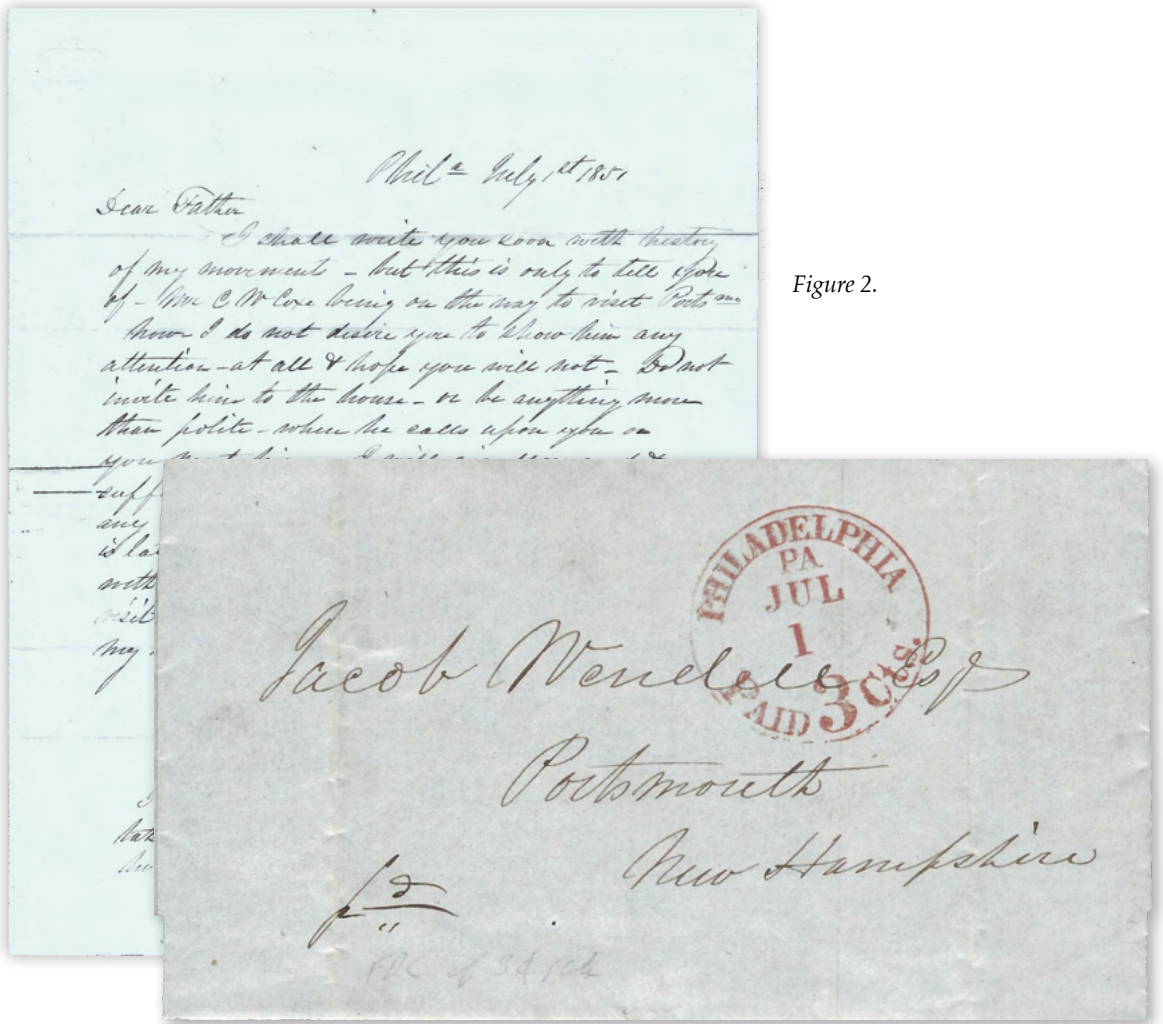 Phil^a July 1st 1851
Dear Father
I shall write you soon with history
of my movements – but this is only to tell you
of – Mr C W Coxe being on the way to visit Ports^mo
now I do not desire you to show him any
attention – at all & hope you will not – Do not
invite him to the house – or be anything more
than polite – when he calls upon you or
you
suff
any
is la
with
visit
my
Figure 2.
PHILADELPHIA
PA
JUL
1
PAID 3 Cts.
Jacob Wendell Esq
Portsmouth
New Hampshire
pd
FDC of 3¢ rate